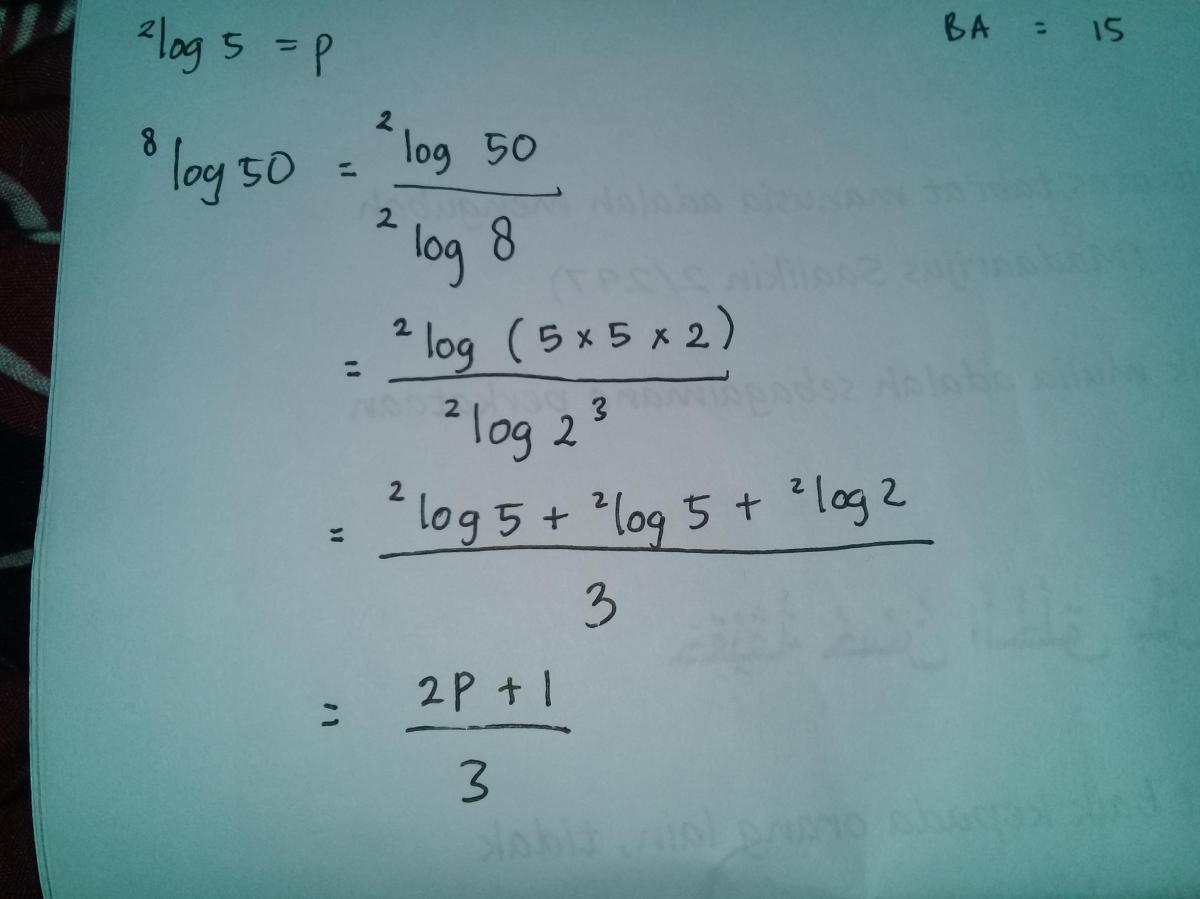 ²log 5 = p
BA = 15
⁸log 50 = ²log 50 / ²log 8
= ²log (5 × 5 × 2) / ²log 2³
= ²log 5 + ²log 5 + ²log 2 / 3
= 2p + 1 / 3